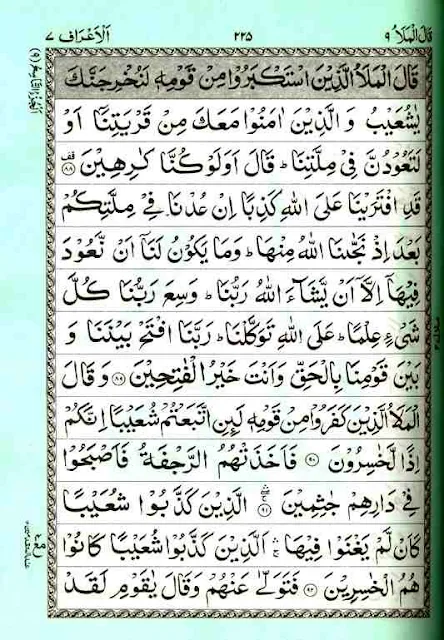 قَالَ الْمَلَاُ ۹
۲۲۵
اَلْاَعْرَاف ۷
قَالَ الْمَلَاُ الَّذِيْنَ اسْتَكْبَرُوْا مِنْ قَوْمِهٖ لَنُخْرِجَنَّكَ
يٰشُعَيْبُ وَ الَّذِيْنَ اٰمَنُوْا مَعَكَ مِنْ قَرْيَتِنَاۤ اَوْ
لَتَعُوْدُنَّ فِيْ مِلَّتِنَا ؕ قَالَ اَوَلَوْ كُنَّا كٰرِهِيْنَ ۟ قف ۸۸
قَدِ افْتَرَيْنَا عَلَى اللّٰهِ كَذِبًا اِنْ عُدْنَا فِيْ مِلَّتِكُمْ
بَعْدَ اِذْ نَجّٰىنَا اللّٰهُ مِنْهَا ؕ وَمَا يَكُوْنُ لَنَاۤ اَنْ نَّعُوْدَ
فِيْهَاۤ اِلَّاۤ اَنْ يَّشَآءَ اللّٰهُ رَبُّنَا ؕ وَسِعَ رَبُّنَا كُلَّ
شَيْءٍ عِلْمًا ؕ عَلَى اللّٰهِ تَوَكَّلْنَا ؕ رَبَّنَا افْتَحْ بَيْنَنَا وَ
بَيْنَ قَوْمِنَا بِالْحَقِّ وَاَنْتَ خَيْرُ الْفٰتِحِيْنَ ۸۹ وَ قَالَ
الْمَلَاُ الَّذِيْنَ كَفَرُوْا مِنْ قَوْمِهٖ لَىِٕنِ اتَّبَعْتُمْ شُعَيْبًا اِنَّكُمْ
اِذًا لَّخٰسِرُوْنَ ۹۰ فَاَخَذَتْهُمُ الرَّجْفَةُ فَاَصْبَحُوْا
فِيْ دَارِهِمْ جٰثِمِيْنَ ۹۱ الَّذِيْنَ كَذَّبُوْا شُعَيْبًا
كَاَنْ لَّمْ يَغْنَوْا فِيْهَا ۚ اَلَّذِيْنَ كَذَّبُوْا شُعَيْبًا كَانُوْا
هُمُ الْخٰسِرِيْنَ ۹۲ فَتَوَلّٰى عَنْهُمْ وَقَالَ يٰقَوْمِ لَقَدْ